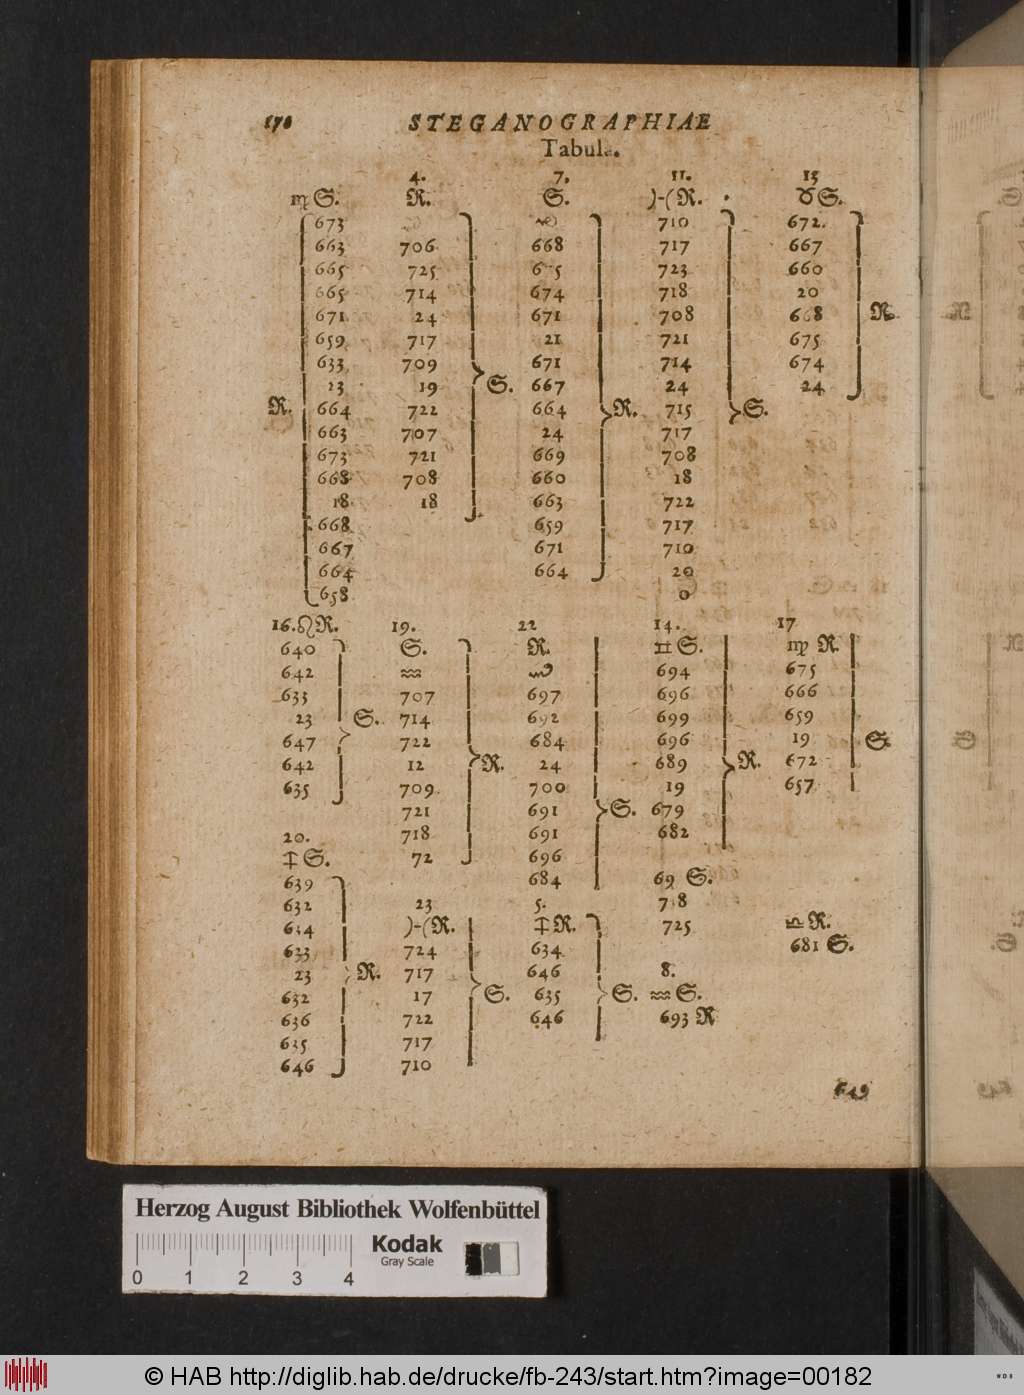 170 STEGANOGRAPHIAE
Tabula.
4. 7. 11. 15
♍ S. R. S. )-( R. ♉ S.
673 710 672.
663 706 668 717 667
665 725 675 723 660
665 714 674 718 20
671 24 671 708 668 R.
659 717 21 721 675
633 709 671 714 674
23 19 S. 667 24 24
R. 664 722 664 R. 715 S.
663 707 24 717
673 721 669 708
668 708 660 18
18 18 663 722
668 659 717
667 671 710
664 664 20
658 0
16. ♌ R. 19. 22 14. 17
640 S. R. ♊ S. ♍ R.
642 ♒ 694 675
633 707 697 696 666
23 S. 714 692 699 659
647 722 684 696 19 S.
642 12 R. 24 689 R. 672
635 709 700 19 657
721 691 S. 679
20. 718 691 682
S. 72 696
639 684 69 S.
632 23 5. 718
634 )-( R. R. 725 ♎ R.
633 724 634 681 S.
23 R. 717 646 8.
632 17 S. 635 S. ♒ S.
636 722 646 693 R
635 717
646 710
649
Herzog August Bibliothek Wolfenbüttel
Kodak
Gray Scale
0 1 2 3 4
© HAB http://diglib.hab.de/drucke/fb-243/start.htm?image=00182